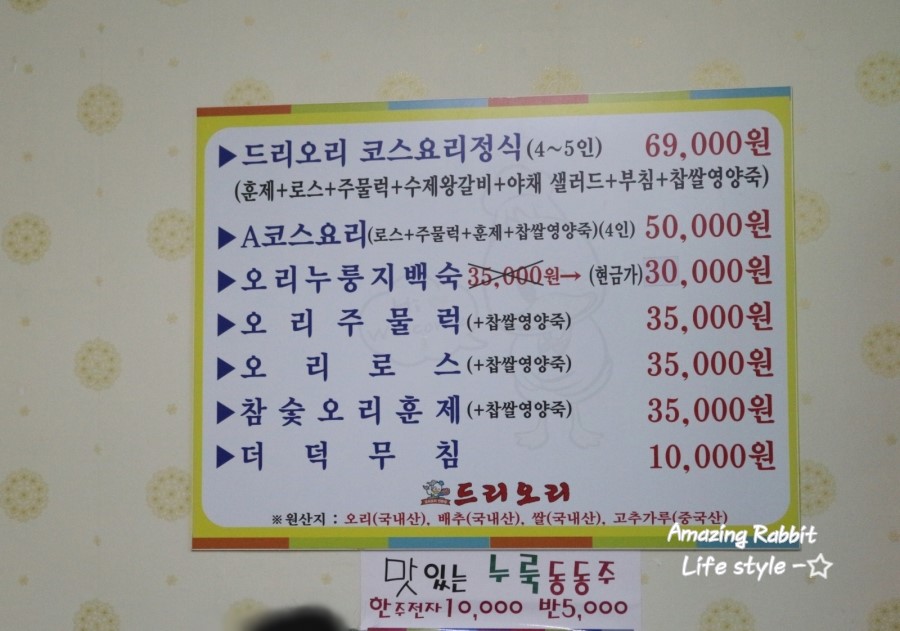 ▶드리오리 코스요리정식(4~5인) 69,000원
(훈제+로스+주물럭+수제왕갈비+야채 샐러드+부침+찹쌀영양죽)
▶A코스요리(로스+주물럭+훈제+찹쌀영양죽)(4인) 50,000원
▶오리누룽지백숙 35,000원→ (현금가)30,000원
▶오리주물럭(+찹쌀영양죽) 35,000원
▶오리로스(+찹쌀영양죽) 35,000원
▶참숯오리훈제(+찹쌀영양죽) 35,000원
▶더덕무침 10,000원
드리오리
※원산지 : 오리(국내산), 배추(국내산), 쌀(국내산), 고추가루(중국산)
Amazing Rabbit
Life style -☆
맛있는 누룩동동주
한주전자10,000 반5,000